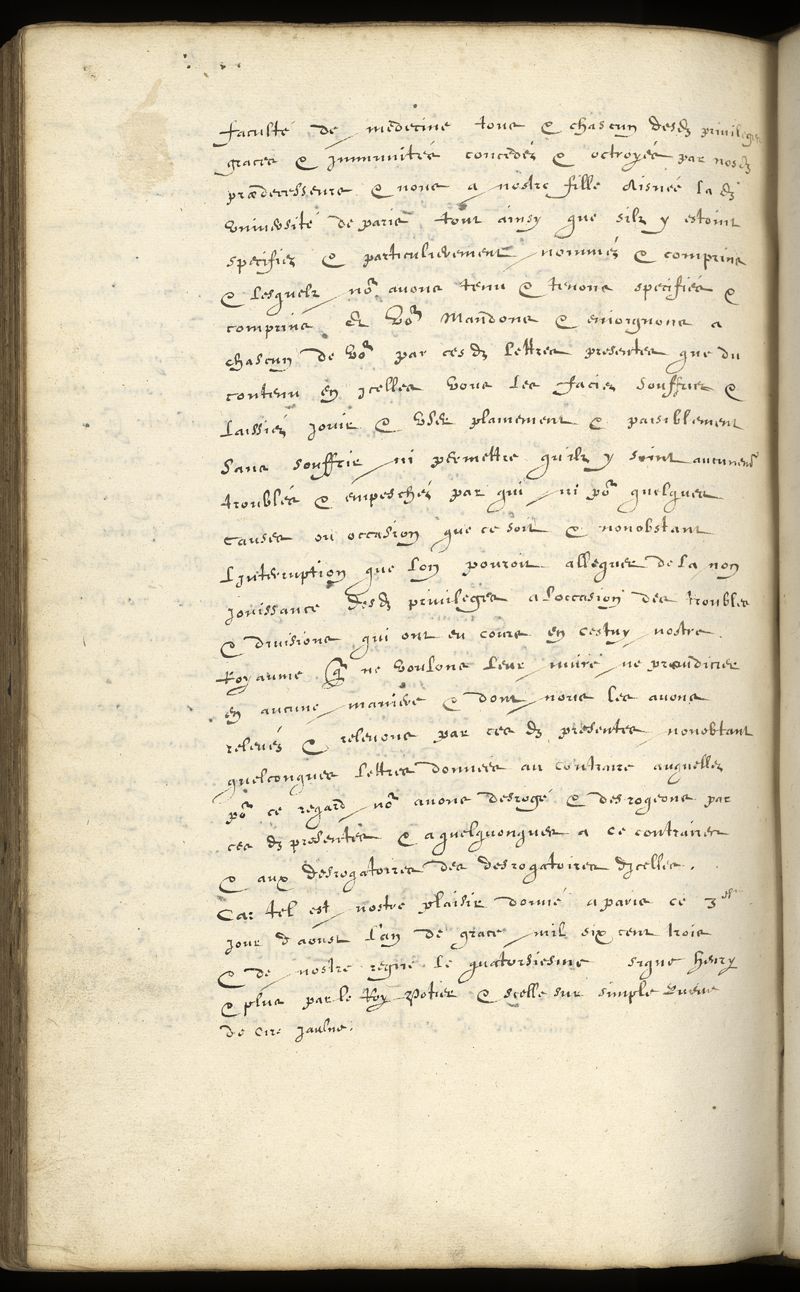 faculté de medecine tous & chascun desd privileges
graces & immunités concedés & octroyés par nosd
prædecesseurs & nous a nostre fille aisnée lad
Université de paris tout ainsy que silz y estoint
specifiez & particulierement nommés & comprins
& lesquelz nos avons tenu & tenons specifiés &
comprins et vos Mandons & enioignons a
chascun de vos par cesd lettres presentes que du
contenu en jcelles vous les facies souffrir &
laissiés jouir & user plainement & paisiblement
sans souffrir ni permettre quilz y soint aucunemt
troublés & empeschés par qui ni por quelques
causes ou occasion que ce soit & nonobstant
Linterruption que lon pouroit alleguer de la non
jouissance desd privileges a loccasion des troubles
& divisions qui ont eu cours en cestuy nostre
Royaume que ne voulons leur nuire ne præiudicier
en aucune maniere & dont nous les avons
relevés & relevons par ces d presentes nonobtant
quelconques lettres donnees au contraire auquelles
por ce regard nos avons desrogé & desrogeons par
ces d presentes & a quelquonques a ce contraires
& aux desrogatoires des desrogatoires dicelles.
Car tel est nostre plaisir donné a paris ce 3em
jour d'aoust l'an de grace mil six cent trois
& de nostre regne le quatorsiesme signe Henry
& plus par le Roy Potier & scelle sur simple queue
de cire jaulne.